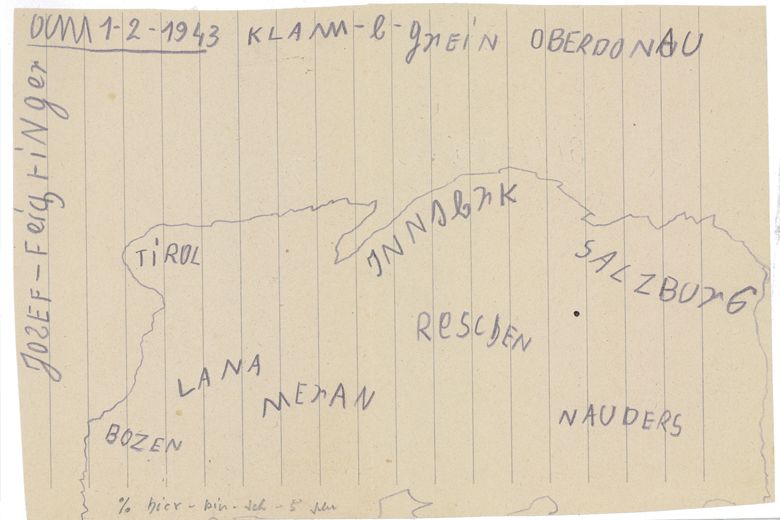 DUM 1-2-1943 KLAMM-b-grEIN OBERDONAU
JOZEF-FEigHTiNger
TiROL
INNSbrK
SALZBUrG
RESCDEN
LANA
MErAN
NAUDERS
BOZEN
% hier-bin-ich-5 Jahr